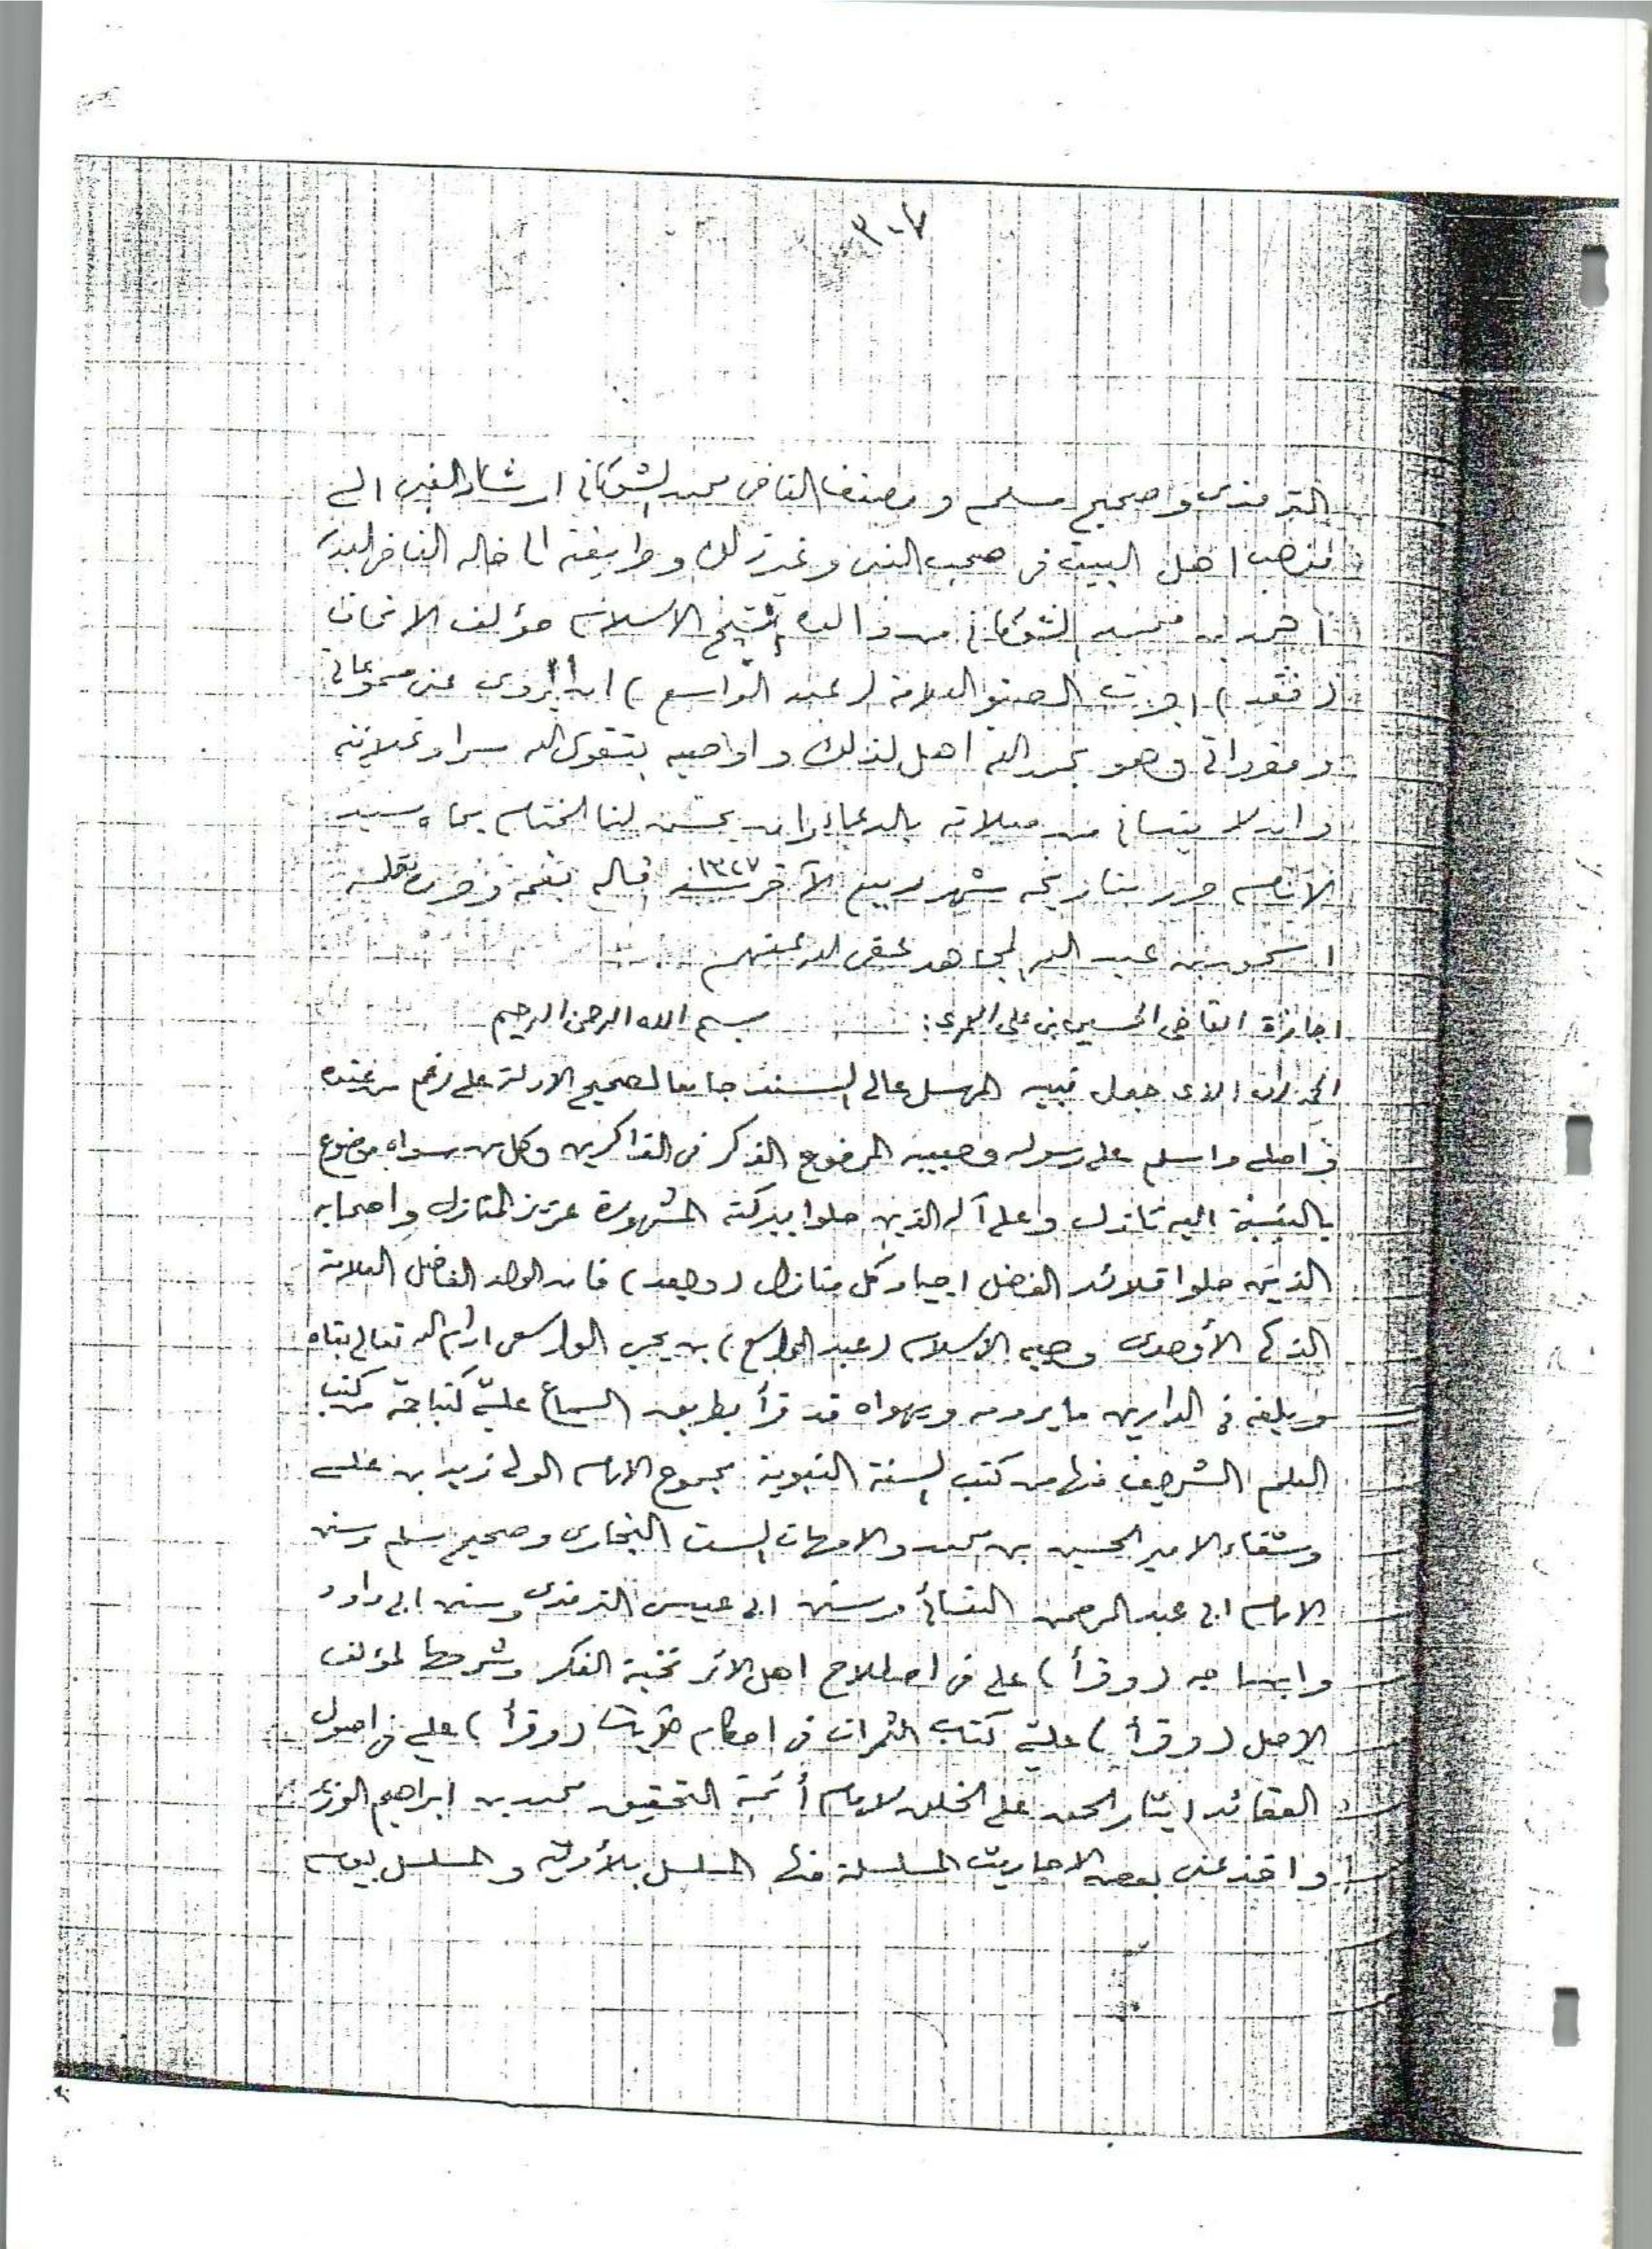 ٣٠٧
الترمذى وصحيح مسلم ومصنفا القاضى محمد الشوكانى ارشاد الغبى الى
مذهب اهل البيت فى صحب النبى وغير ذلك وطريقته الى خاله القاضى
احمد بن محمد الشوكانى من والده شيخ الاسلام مؤلف الاتحاف
(فقد) اجزت الصنو العلامة (عبد الواسع) ان يروى عنى مسموعاتى
ومقرواتى وهو بحمد الله اهل لذلك واواصيه بتقوى الله سرا وعلانيه
وان لا ينسانى من صلاته بالدعاء وان يحسن لنا الختام بجاه سيد
الانام حرر بتاريخه شهر ربيع الآخر سنة ١٣٢٧ قاله بفمه وحرره بقلمه
محمد بن عبد الله المجاهد عفى الله عنهم
اجازة القاضى الحسين بن على العمري: بسم الله الرحمن الرحيم
الحمد لله الذى جعل نبيه المرسل عالى السند جامعا لصحيح الادلة على رغم من عنده
واصلى واسلم على رسوله وحبيبه المرفوع الذكر فى الذاكرين وكل من سواه موضوع
بالنسبة اليه نازل وعلى آله الذين حلوا ببركته المشهورة عزيز المنازل واصحابه
الذين حلوا قلائد الفضل اجياد كل منازل (وبعد) فان الولد الفاضل العلامة
الذكى الأوحدى وجيه الاسلام (عبد الواسع) بن يحيى الواسعى ادام الله تعالى بقاه
وبلغه فى الدارين ما يرومه ويهواه قد قرأ بطريق السماع علىّ كتبا جمة من كتب
العلم الشريف فمنها من كتب السنة النبوية مجموع الامام الولى زيد ابن على
وشفاء الامير الحسين بن محمد والامهات الست البخارى وصحيح مسلم وسنن
الامام ابى عبد الرحمن النسائى وسنن ابى عيسى الترمذى وسنن ابى داود
وابن ماجه (وقرأ) على فى اصطلاح اهل الاثر نخبة الفكر وشرحها لمؤلف
الاصل (وقرأ) علىّ كتاب الثمرات فى احكام (وقرأ) على فى اصول
العقائد ايثار الحق على الخلق لامام أئمة التحقيق محمد بن ابراهيم الوزير
واخذ عنى بعض الاحاديث المسلسلة فمنها المسلسل بالأولية والمسلسل بيوم